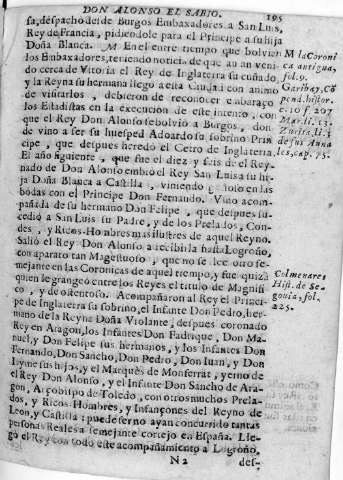 DON ALONSO EL SABIO. 195
sa, despachò desde Burgos Embaxadores a San Luis,
Rey de Francia, pidiendole para el Principe a su hija
Doña Blanca. M En el entre tiempo que bolvian
los Embaxadores, teniendo noticia de que avian veni-
do cerca de Vitoria el Rey de Inglaterra su cuñado,
y la Reyna su hermana llegò a esta Ciudad con animo
de visitarlos, y debieron de reconocer embaraço
los Estadistas en la execucion de este intento, con
que el Rey Don Alonso se bolviò a Burgos, don
de vino a ser su huesped Adoardo su sobrino Prin
cipe, que despues heredò el Cetro de Inglaterra.
El año siguiente, que fue el diez y seis de el Rey-
nado de Don Alonso embiò el Rey San Luis a su hi-
ja Doña Blanca a Castilla, viniendo
bodas con el Principe Don Fernando. Vino acom-
pañada de su hermano Don Felipe, que despues su-
cediò a San Luis su Padre, y de los Prelados, Con-
des, y Ricos-Hombres mas illustres de aquel Reyno.
Saliò el Rey Don Alonso a recibirla hasta Logroño,
con aparato tan Magestuoso, que no se lee otro se-
mejante en las Coronicas de aquel tiempo, y fue quizà
quien le grangeò entre los Reyes el titulo de Magnifi
co, y de ostentoso. Acompañaron al Rey el Princi-
pe de Inglaterra su sobrino, el Infante Don Pedro, her-
mano de la Reyna Doña Violante, despues coronado
Rey en Aragon, los Infantes Don Fadrique, Don Ma-
nuel, y Don Felipe sus hermanos, y los Infantes Don
Fernando, Don Sancho, Don Pedro, Don Iuan, y Don
Iayme sus hijos, y el Marquès de Monferrat, yerno de
el Rey Don Alonso, y el Infante Don Sancho de Ara-
gon, Arçobispo de Toledo, con otros muchos Prela-
dos, y Ricos-Hombres, y Infançones del Reyno de
Leon, y Castilla: pues de ser no ayan concurrido tantas
personas Reales a semejante cortejo en España. Lle-
gò el Rey con todo este acompañamiento a Logroño,
N 2 des-
M la Coroni
ca antigua,
fol. 9.
Garibay, Cō
pend. histor.
c. 10 f. 207
Mar. li. 13.
Zurita li. 3
de sus Anna
les, cap. 75.
Colmenares
Hist. de Se-
govia, fol.
225.